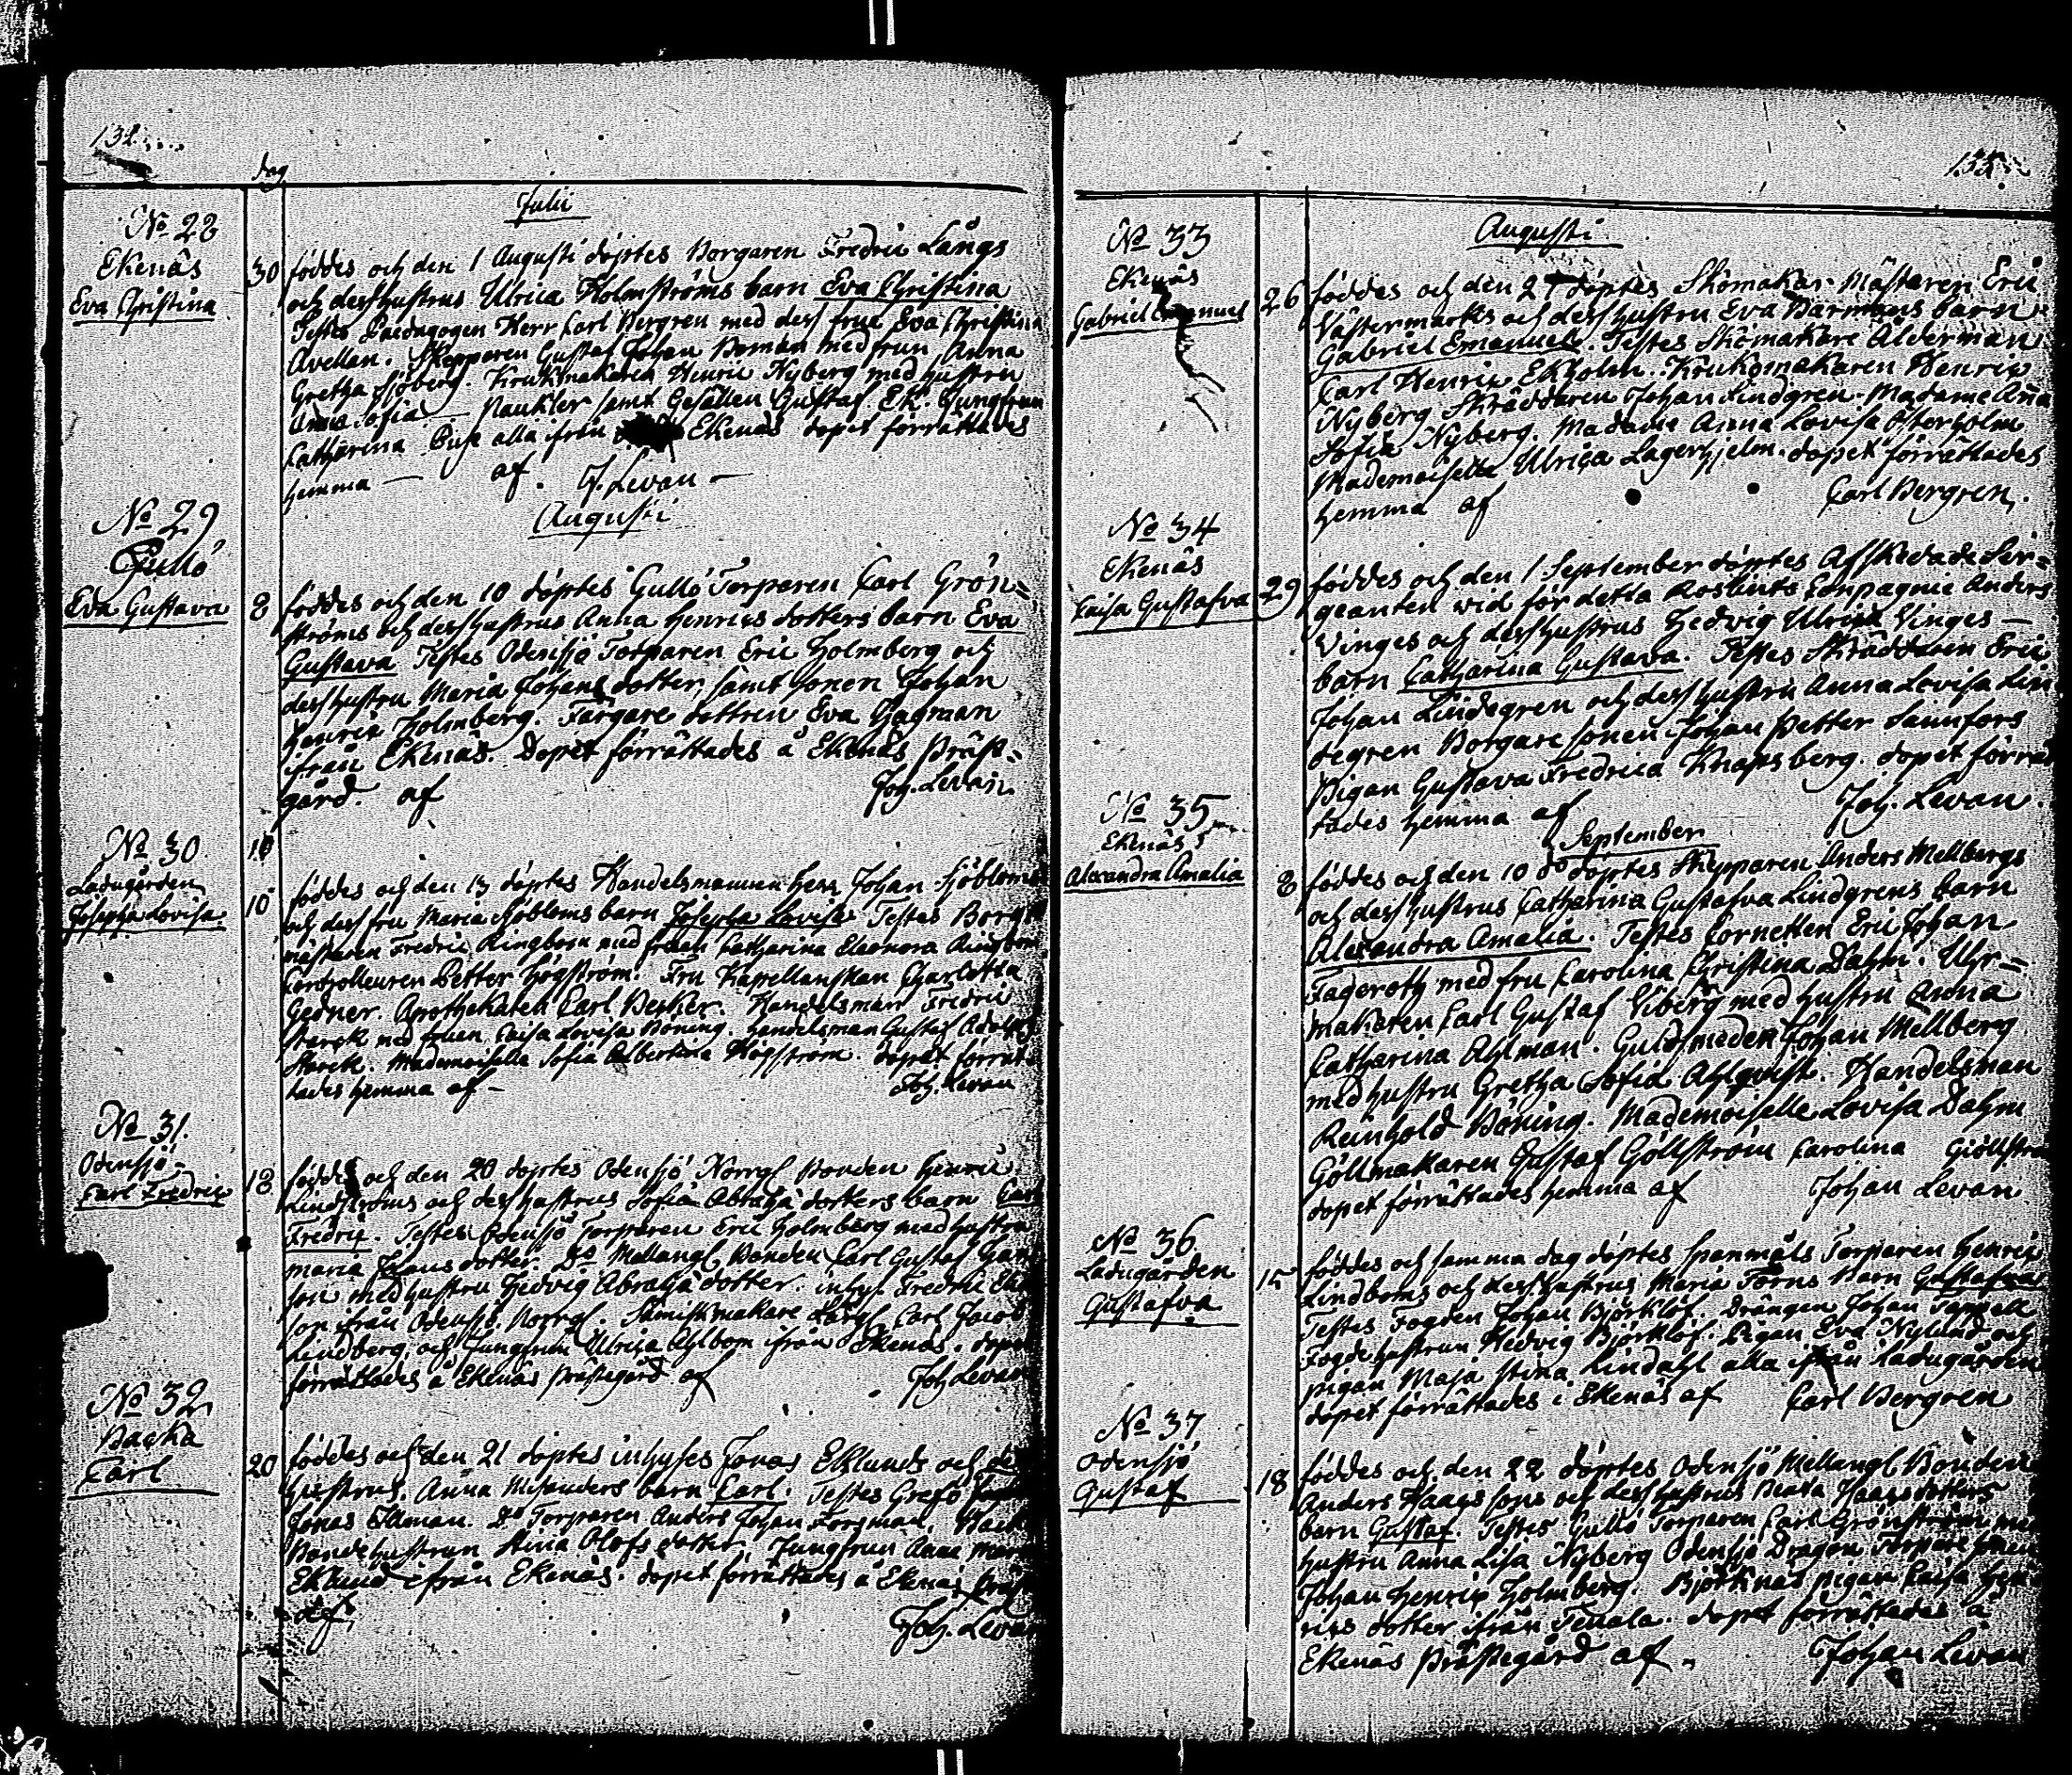 132
dag
Julii
No 28
Ekenäs
Eva Christina
30
föddes och den 1 Augusti döptes Borgaren Fredric Långs
och dess hustrus Ulrica Holmströms barn Eva Christina
Testes Paedagogen Herr Carl Bergren med dess frua Eva Christina
Avellan. Skepparen Gustaf Johan Boman med frun Anna
Gretha Sjöberg. Krukmakaren Henric Nyberg med hustru
Anna Sofia Naukler samt Gesällen Gustaf Ek. Jungfrun
Catharina alla ifrån Ekenäs dopet förrättades
hemma — af. J. Levan —
Augusti
No 29
Gullö
Eva Gustava
8
föddes och den 10 döptes Gullö Torparen Carl Grön=
ströms och dess hustrus Anna Henrics dotters barn Eva
Gustava Testes Odensjö Torparen Eric Holmberg och
dess hustru Maria Johans dotter, samt sonen Johan
Henric Holmberg. Färgare dottren Eva Hagman
ifrån Ekenäs. Dopet förrättades å Ekenäs Präst=
gård. af Joh. Levan.
No 30
Ladugården
Josepha Lovisa
10
10
föddes och den 13 döptes Handelsmannen Herr Johan Sjöbloms
och dess fru Maria Sjöbloms barn Josepha Lovisa Testes Borg
mästaren Fredric Ringbom med fruen Catharina Eleonora Ringbom
Controlleuren Petter Högström. Fru Kapellanskan Charlotta
Gedner. Apothekaren Carl Becker. Handelsman Fredric
Starck med fruen Caisa Lovisa Böning. Handelsman Gustaf Adolph
Starck. Mademoiselle Sofia Albertina Högström. Dopet förrät
tades hemma af — Joh. Levan
No 31.
Odensjö
Carl Fredric
18
föddes och den 20 döptes Odensjö Norrgl Bonden Henric
Lindströms och dess hustrus Sofia Abrahā dotters barn Carl
Fredric. Testes Odensjö Torparen Eric Holmberg med hustru
Maria Johans dotter. Do Mellangl Bonden Carl Gustaf
son med hustru Hedvig Abrahā dotter. inhys. Fredric
son ifrån Odensjö Norrgl. Sämiskmakare Lärgl Carl Jacob
Lindberg, och Jungfrun Ulrica Ahlbom ifrån Ekenäs. dopet
förrättades å Ekenäs Prästegård af Joh Levan
No 32
Backa
Carl
20
föddes och den 21 döptes inhyses Jonas Eklunds och dess
hustrus Anna Misanders barn Carl. Testes Grefö
Jonas Ekman. Do Torparen Anders Johan Forsman. Back
Bonde hustrun Stina Olofs dotter. Jungfrun Anna Mar
Eklund ifrån Ekenäs. dopet förrättades å Ekenäs
af Joh. Levan
133
Augusti
No 33
Ekenäs
Gabriel Emanuel
26
föddes och den 27 döptes Skomakar Mästaren Eric
Västermarks och dess hustru Eva Barmans barn
Gabriel Emanuel. Testes Skomakare Ålderman
Carl Henric Ekholm. Krukomakaren Henric
Nyberg Skräddaren Johan Lindgren. Madame Aña
Sofia Nyberg. Madame Anna Lovisa Österholm
Mademoiselle Ulrica Lagerhjelm. dopet förrättades
hemma af Carl Bergren.
No 34
Ekenäs
Caisa Gustafva
29
föddes och den 1 September döptes Afskedade Ser=
geanten vid för detta Compagnie Anders
Vinges och dess hustrus Hedvig Ulrica Vinges —
barn Catharina Gustava. Testes Skräddaren Eric
Johan Lindegren och dess hustru Anna Lovisa Lin
degren Borgare sonen Johan Petter
Pigan Gustava Fredrica Knapsberg. dopet förrät
tades hemma af Joh. Levan.
September
No 35
Ekenäs
Alexandra Amalia
8
föddes och den 10 do döptes Skepparen Anders Mellbergs
och dess hustrus Catharina Gustafva Lindgrens barn
Alexandra Amalia. Testes Cornetten Eric Johan
Fageroth med fru Carolina Christina Dahm. Uhr=
makaren Carl Gustaf Viberg med hustru Anna
Catharina Ahlman. Guldsmeden Johan Mellberg
med hustru Gretha Sofia Ahlqvist. Handelsman
Reinhold Böning. Mademoiselle Lovisa Dahm
Göllmakaren Gustaf Göllström Carolina Giöllströ
dopet förrättades hemma af Johan Levan
No 36
Ladugården
Gustafva
15
föddes och samma dag döptes Spanmåls Torparen Henric
Lindboms och dess hustrus Maria Törns Barn Gustafva
Testes Fogden Johan Björklöf. Drängen Johan
Fogde hustrun Hedvig Björklöf. Pigan Eva Nylund och
pigan Maja Stina Lindahl alla ifrån Ladugården
dopet förrättades i Ekenäs af Carl Bergren
No 37
Odensjö
Gustaf
18
föddes och den 22 döptes Odensjö Mellangl Bonden
Anders Haags sons och dess hustrus Beata dotters
barn Gustaf. Testes Gullö Torparen Carl Grönström med
hustru Anna Lisa Nyberg Odensjö Dragon Torpare sonen
Johan Henric Holmberg. Björknäs pigan Caisa Hen
rics dotter ifrån Tenala. dopet förrättades å
Ekenäs Prästegård af Johan Levan